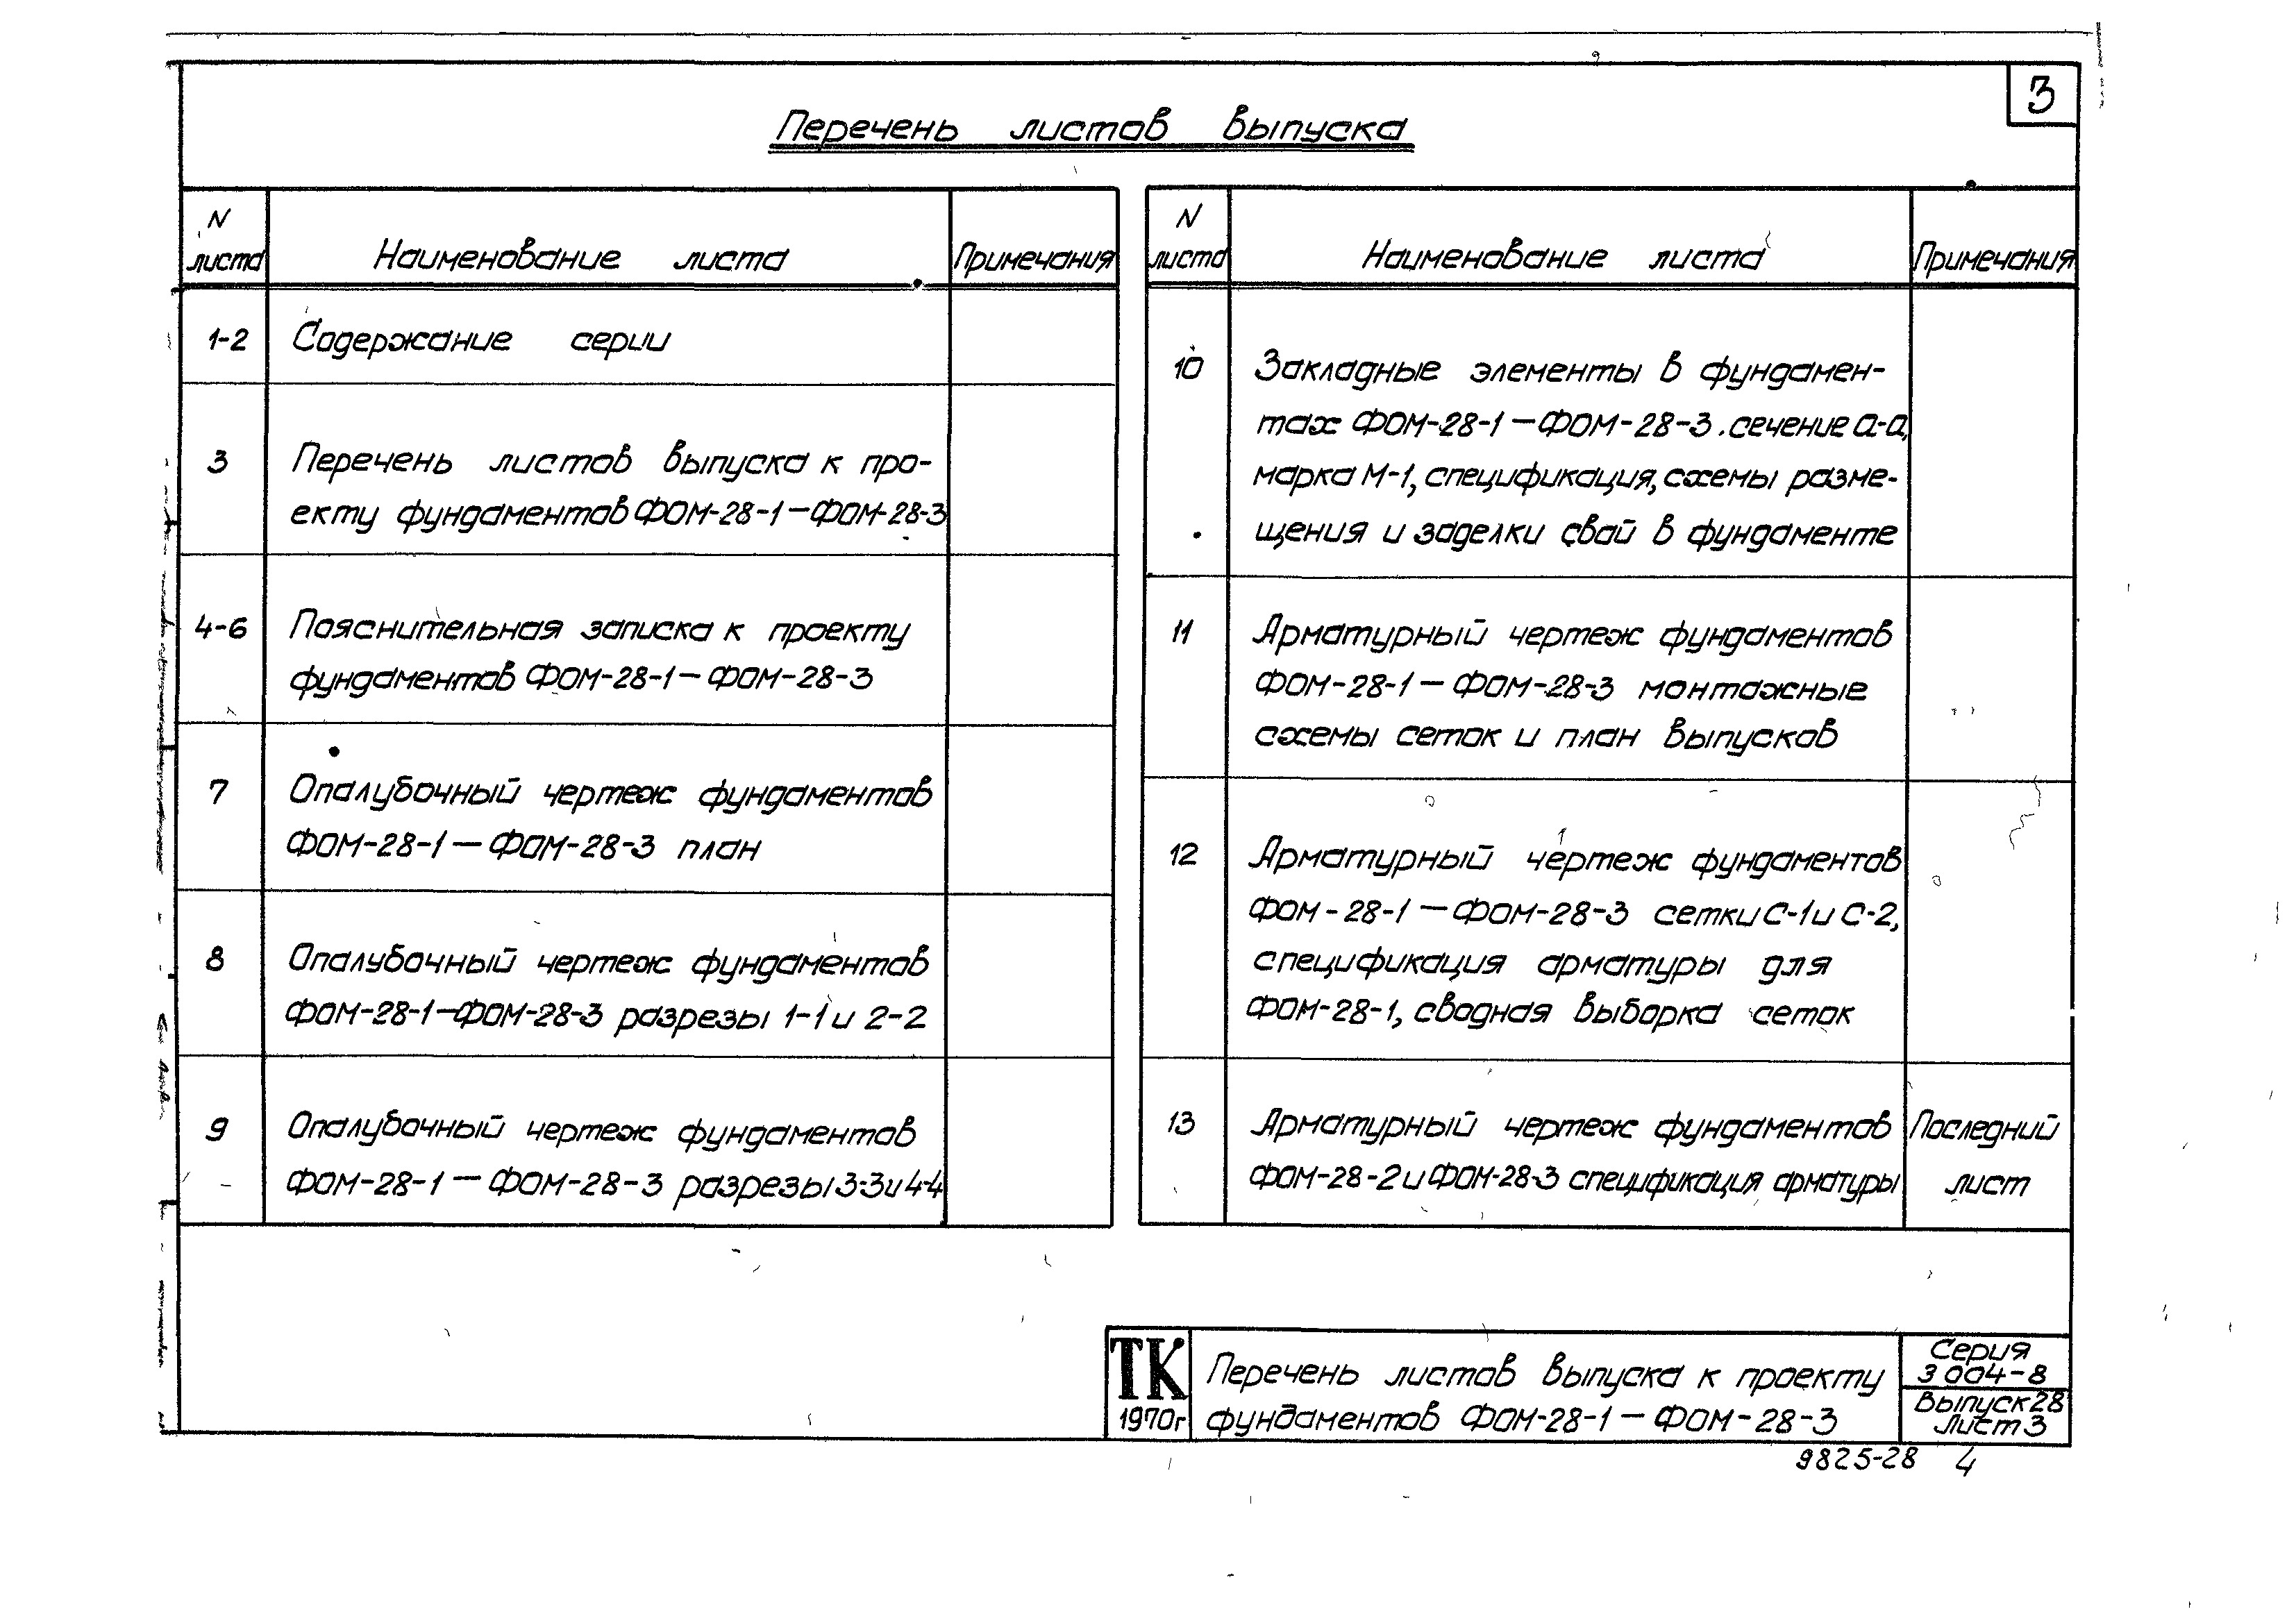 3
Перечень листов выпуска
N
листа
Наименование листа
Примечания
1-2
Содержание серии
3
Перечень листов выпуска к про-
екту фундаментов ФОМ-28-1—ФОМ-28-3
4-6
Пояснительная записка к проекту
фундаментов ФОМ-28-1—ФОМ-28-3
7
Опалубочный чертеж фундаментов
ФОМ-28-1—ФОМ-28-3 план
8
Опалубочный чертеж фундаментов
ФОМ-28-1—ФОМ-28-3 разрезы 1-1 и 2-2
9
Опалубочный чертеж фундаментов
ФОМ-28-1—ФОМ-28-3 разрезы 3-3 и 4-4
N
листа
Наименование листа
Примечания
10
Закладные элементы в фундамен-
тах ФОМ-28-1—ФОМ-28-3. сечение а-а,
марка М-1, спецификация, схемы разме-
щения и заделки свай в фундаменте
11
Арматурный чертеж фундаментов
ФОМ-28-1—ФОМ-28-3 монтажные
схемы сеток и план выпусков
12
Арматурный чертеж фундаментов
ФОМ-28-1—ФОМ-28-3 сетки С-1 и С-2,
спецификация арматуры для
ФОМ-28-1, сводная выборка сеток
13
Арматурный чертеж фундаментов
ФОМ-28-2 и ФОМ-28-3 спецификация арматуры
Последний
лист
ТК
1970г
Перечень листов выпуска к проекту
фундаментов ФОМ-28-1—ФОМ-28-3
Серия
3 004-8
Выпуск 28
Лист 3
9825-28 4